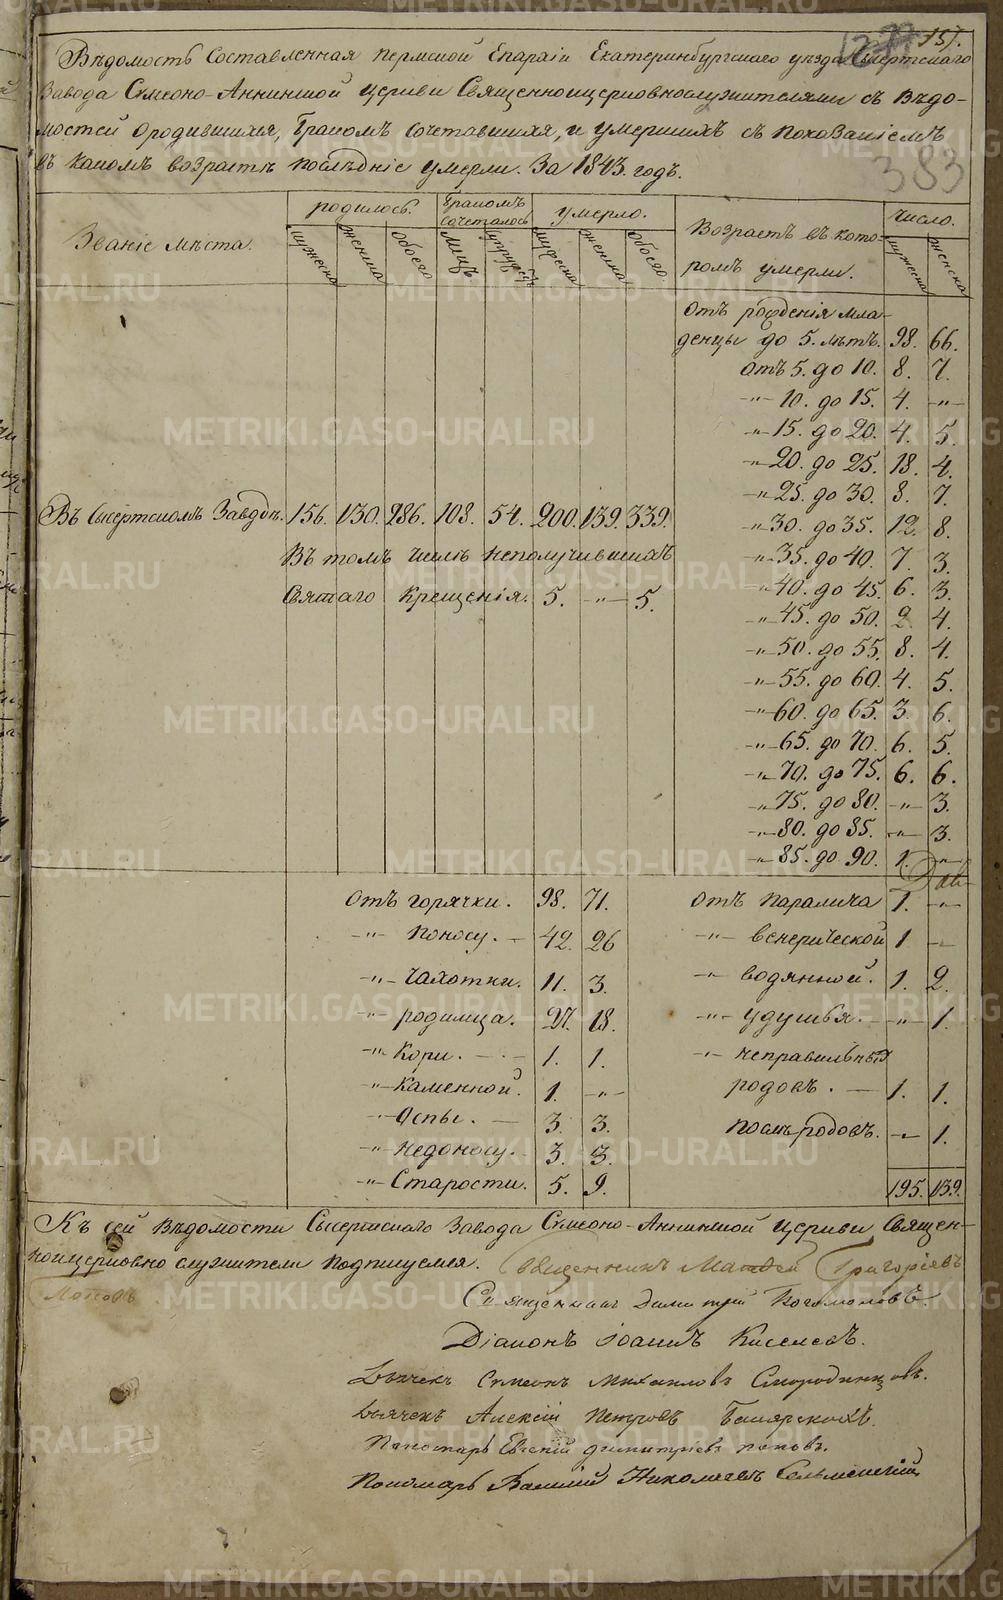 157.
383
Вѣдомость Составленная Пермской Епархіи Екатеринбургскаго уѣзда Сысертскаго
Завода Симеоно-Аннинской Церкви Священноцерковнослужителями съ Вѣдо-
мостей о родившихся, бракомъ сочетавшихся, и умершихъ съ показаніемъ
въ какомъ возрастѣ послѣдніе умерли. За 1843. годъ.
Званіе мѣста. родилось. Бракомъ сочеталось умерло. Возрастъ въ кото- Число.
ромъ умерли.
мужеска женска обоего Лицъ мужеска женска обоего мужеска женска
Отъ рожденія мла-
денцы до 5. лѣтъ. 98. 66.
Отъ 5. до 10. 8. 7.
-"- 10. до 15. 4. -"-
-"- 15. до 20. 4. 5.
-"- 20. до 25. 18. 4.
-"- 25. до 30. 8. 7.
Въ Сысертскомъ Заводѣ. 156. 130. 286. 108. 54. 200. 139. 339. -"- 30. до 35. 12. 8.
Въ томъ числѣ неполучившихъ -"- 35. до 40. 7. 3.
Святаго Крещенія. 5. -"- 5. -"- 40. до 45. 6. 3.
-"- 45. до 50. 2. 4.
-"- 50. до 55. 8. 4.
-"- 55. до 60. 4. 5.
-"- 60. до 65. 3. 6.
-"- 65. до 70. 6. 5.
-"- 70. до 75. 6. 6.
-"- 75. до 80. -"- 3.
-"- 80. до 85. -"- 3.
-"- 85. до 90. 1. -"-
Отъ горячки. 98. 71. Отъ паралича 1. -"-
-"- Поносу. 42. 26 -"- венерической 1 -"-
-"- Чахотки. 11. 3. -"- водянной. 1. 2.
-"- родимца. 27. 18. -"- удушья. -"- 1.
-"- Кори. 1. 1. -"- неправильныхъ
-"- Каменной. 1. -"- родовъ. 1. 1.
-"- Оспы. 3. 3. послѣ родовъ. -"- 1.
-"- недоносу. 3. 3.
-"- Старости. 5. 9. 195. 139.
Къ сей Вѣдомости Сысертскаго Завода Симеоно-Аннинской Церкви Священ-
ноцерковно служители подписуемся. Священникъ Матфей Григоріевъ
Поповъ
Священникъ Димитрій Богомоловъ.
Діаконъ Іоаннъ Киселевъ.
Дьячекъ Симеонъ Михаиловъ Смородинцовъ.
Дьячекъ Алексій Петровъ
Пономарь Евгеній Димитріевъ Поповъ.
Пономарь Василій Николаевъ
METRIKI.GASO-URAL.RU